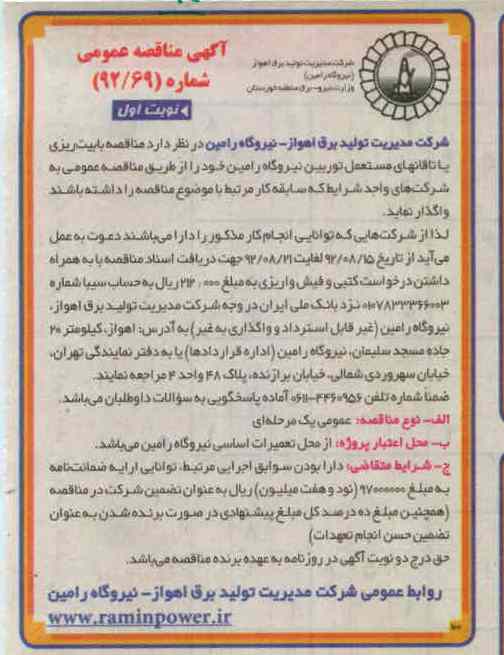 آگهی مناقصه عمومی
شماره (۹۲/۶۹)
نوبت اول
شرکت مدیریت تولید برق اهواز
(نیروگاه رامین)
وزارت نیرو - برق منطقه خوزستان
شرکت مدیریت تولید برق اهواز- نیروگاه رامین در نظر دارد مناقصه بابیت‌ریزی
یاتاقانهای مستعمل توربین نیروگاه رامین خود را از طریق مناقصه عمومی به
شرکت‌های واجد شرایط که سابقه کار مرتبط با موضوع مناقصه را داشته باشند
واگذار نماید.
لذا از شرکت‌هایی که توانایی انجام کار مذکور را دارا می‌باشند دعوت به عمل
می‌آید از تاریخ ۹۲/۰۸/۱۵ لغایت ۹۲/۰۸/۲۱ جهت دریافت اسناد مناقصه با به همراه
داشتن درخواست کتبی و فیش واریزی به مبلغ ۲۱۲,۰۰۰ ریال به حساب سیبا شماره
۰۱۰۷۸۳۳۳۶۶۰۰۳ نزد بانک ملی ایران در وجه شرکت مدیریت تولید برق اهواز،
نیروگاه رامین (غیر قابل استرداد و واگذاری به غیر) به آدرس: اهواز، کیلومتر ۲۰
جاده مسجد سلیمان، نیروگاه رامین (اداره قراردادها) یا به دفتر نمایندگی تهران،
خیابان سهروردی شمالی، خیابان برازنده، پلاک ۴۸ واحد ۴ مراجعه نمایند.
ضمنا شماره تلفن ۴۴۶۰۹۵۶-۰۶۱۱ آماده پاسخگویی به سؤالات داوطلبان می‌باشد.
الف- نوع مناقصه: عمومی یک مرحله‌ای
ب- محل اعتبار پروژه: از محل تعمیرات اساسی نیروگاه رامین می‌باشد.
ج- شرایط متقاضی: دارا بودن سوابق اجرایی مرتبط، توانایی ارایه ضمانت‌نامه
به مبلغ ۹۷۰۰۰۰۰۰ (نود و هفت میلیون) ریال به عنوان تضمین شرکت در مناقصه
(همچنین مبلغ ده درصد کل مبلغ پیشنهادی در صورت برنده شدن به عنوان
تضمین حسن انجام تعهدات)
حق درج دو نوبت آگهی در روزنامه به عهده برنده مناقصه می‌باشد.
روابط عمومی شرکت مدیریت تولید برق اهواز- نیروگاه رامین
www.raminpower.ir